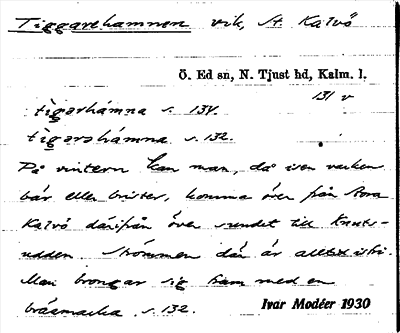 Tiggarehamnen vik, St. Kalvö
Ö. Ed sn, N. Tjust hd, Kalm. l.
131 v
tigarhámna s. 134.
tigarshámna s. 132.
På vintern kan man, då isen varken
bär eller brister, komma över från Stora
Kalvö därifrån över sundet till Knuts-
udden. Strömmen där är alltid
Man sig fram med en
s. 132.
Ivar Modéer 1930